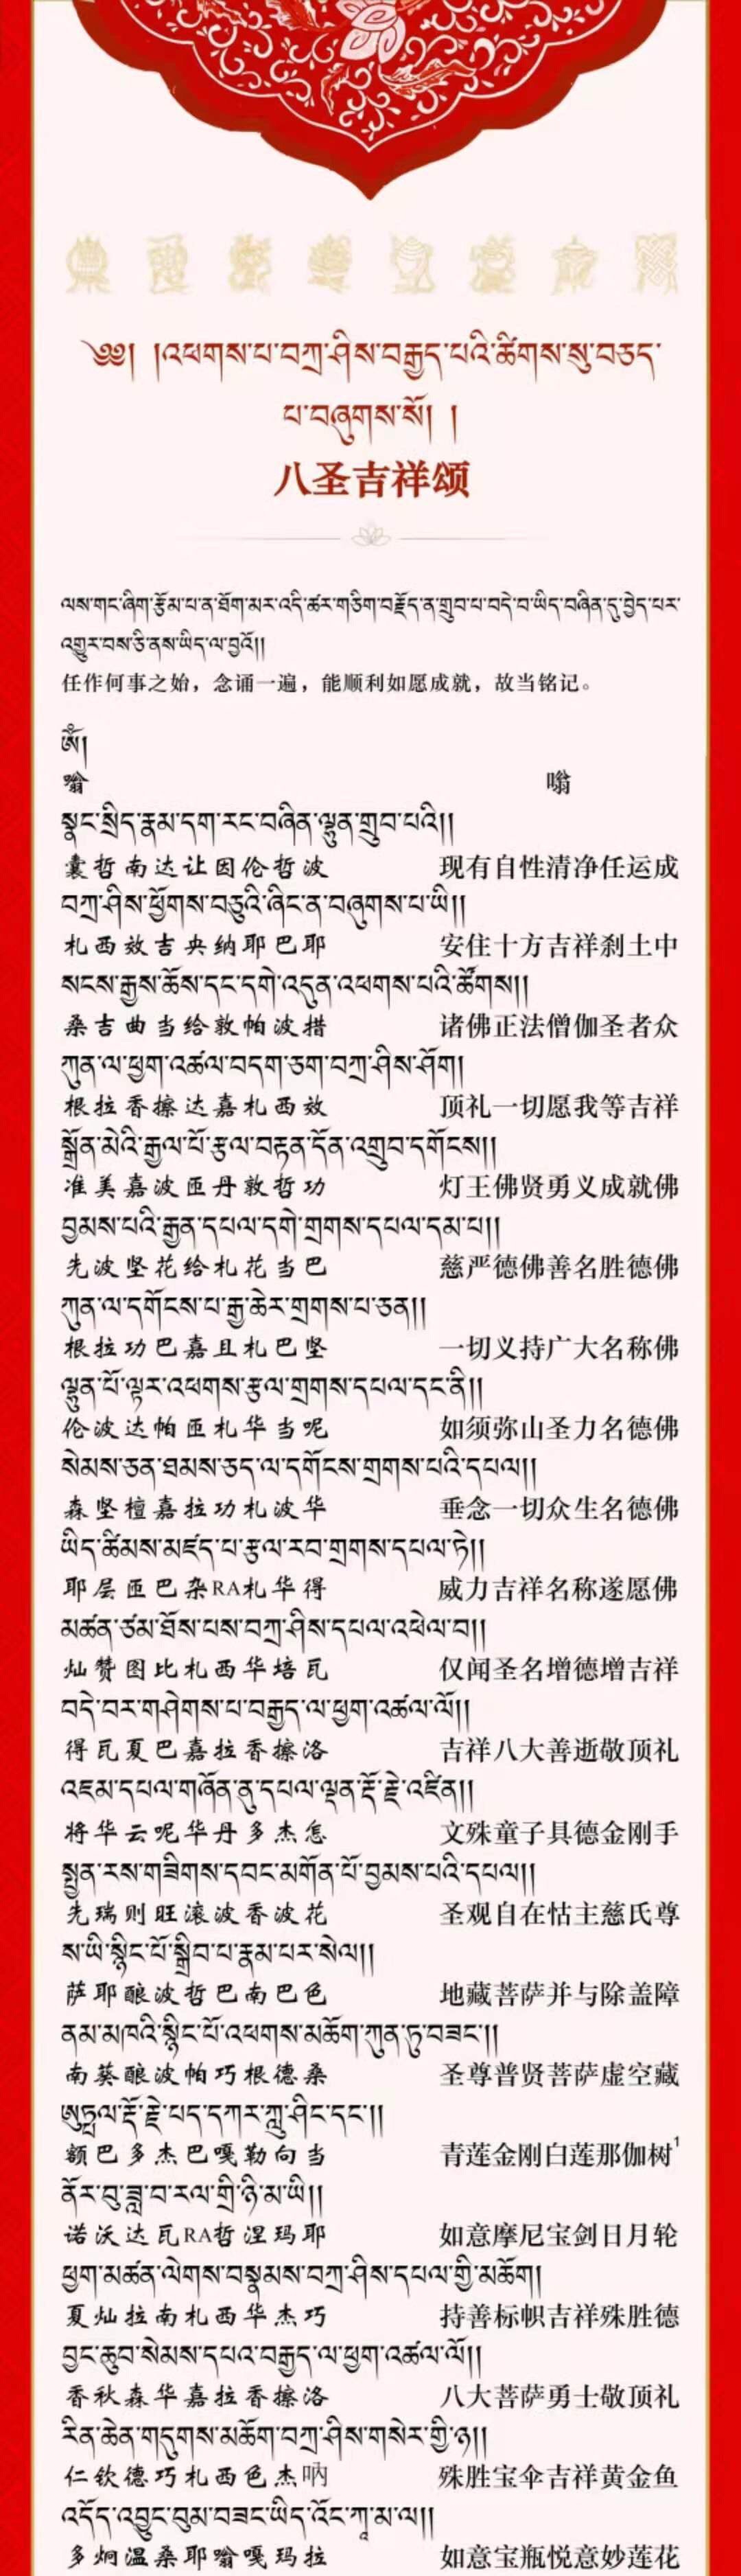 ༄༅། །འཕགས་པ་བཀྲ་ཤིས་བརྒྱད་པའི་ཚིགས་སུ་བཅད་
པ་བཞུགས་སོ། །
八圣吉祥颂
ལས་གང་ཞིག་རྩོམ་པ་ན་ཐོག་མར་འདི་ཚར་གཅིག་བརྗོད་ན་གྲུབ་པ་བདེ་བ་ཡིད་བཞིན་དུ་བྱེད་པར་
འགྱུར་བས་ཅི་ནས་ཡིད་ལ་བྱའོ།།
任作何事之始，念诵一遍，能顺利如愿成就，故当铭记。
ཨོཾ།
嗡 嗡
སྣང་སྲིད་རྣམ་དག་རང་བཞིན་ལྷུན་གྲུབ་པའི།།
囊哲南达让因伦哲波 现有自性清净任运成
བཀྲ་ཤིས་ཕྱོགས་བཅུའི་ཞིང་ན་བཞུགས་པ་ཡི།།
札西效吉央纳耶巴耶 安住十方吉祥刹土中
སངས་རྒྱས་ཆོས་དང་དགེ་འདུན་འཕགས་པའི་ཚོགས།།
桑吉曲当给敦帕波措 诸佛正法僧伽圣者众
ཀུན་ལ་ཕྱག་འཚལ་བདག་ཅག་བཀྲ་ཤིས་ཤོག།
根拉香擦达嘉札西效 顶礼一切愿我等吉祥
སྒྲོན་མེའི་རྒྱལ་པོ་རྩལ་བརྟན་དོན་འགྲུབ་དགོངས།།
准美嘉波匝丹敦哲功 灯王佛贤勇义成就佛
བྱམས་པའི་རྒྱན་དཔལ་དགེ་གྲགས་དཔལ་དམ་པ།།
先波坚花给札花当巴 慈严德佛善名胜德佛
ཀུན་ལ་དགོངས་པ་རྒྱ་ཆེར་གྲགས་པ་ཅན།།
根拉功巴嘉且札巴坚 一切义持广大名称佛
ལྷུན་པོ་ལྟར་འཕགས་རྩལ་གྲགས་དཔལ་དང་ནི།།
伦波达帕匝札华当呢 如须弥山圣力名德佛
སེམས་ཅན་ཐམས་ཅད་ལ་དགོངས་གྲགས་པའི་དཔལ།།
森坚檀嘉拉功札波华 垂念一切众生名德佛
ཡིད་ཚིམས་མཛད་པ་རྩལ་རབ་གྲགས་དཔལ་ཏེ།།
耶层匝巴杂RA札华得 威力吉祥名称遂愿佛
མཚན་ཙམ་ཐོས་པས་བཀྲ་ཤིས་དཔལ་འཕེལ་བ།།
灿赞图比札西华培瓦 仅闻圣名增德增吉祥
བདེ་བར་གཤེགས་པ་བརྒྱད་ལ་ཕྱག་འཚལ་ལོ།།
得瓦夏巴嘉拉香擦洛 吉祥八大善逝敬顶礼
འཇམ་དཔལ་གཞོན་ནུ་དཔལ་ལྡན་རྡོ་རྗེ་འཛིན།།
将华云呢华丹多杰怎 文殊童子具德金刚手
སྤྱན་རས་གཟིགས་དབང་མགོན་པོ་བྱམས་པའི་དཔལ།།
先瑞则旺滚波香波花 圣观自在怙主慈氏尊
ས་ཡི་སྙིང་པོ་སྒྲིབ་པ་རྣམ་པར་སེལ།།
萨耶酿波哲巴南巴色 地藏菩萨并与除盖障
ནམ་མཁའི་སྙིང་པོ་འཕགས་མཆོག་ཀུན་ཏུ་བཟང་།།
南葵酿波帕巧根德桑 圣尊普贤菩萨虚空藏
ཨུཏྤལ་རྡོ་རྗེ་པད་དཀར་ཀླུ་ཤིང་དང་།།
额巴多杰巴嘎勒向当 青莲金刚白莲那伽树¹
ནོར་བུ་ཟླ་བ་རལ་གྲི་ཉི་མ་ཡི།།
诺沃达瓦RA哲涅玛耶 如意摩尼宝剑日月轮
ཕྱག་མཚན་ལེགས་བསྣམས་བཀྲ་ཤིས་དཔལ་གྱི་མཆོག།
夏灿拉南札西华杰巧 持善标帜吉祥殊胜德
བྱང་ཆུབ་སེམས་དཔའ་བརྒྱད་ལ་ཕྱག་འཚལ་ལོ།།
香秋森华嘉拉香擦洛 八大菩萨勇士敬顶礼
རིན་ཆེན་གདུགས་མཆོག་བཀྲ་ཤིས་གསེར་གྱི་ཉ།།
仁钦德巧札西色杰呐 殊胜宝伞吉祥黄金鱼
འདོད་འབྱུང་བུམ་བཟང་ཡིད་འོང་ཀཱ་མ་ལ།།
多炯温桑耶嗡嘎玛拉 如意宝瓶悦意妙莲花